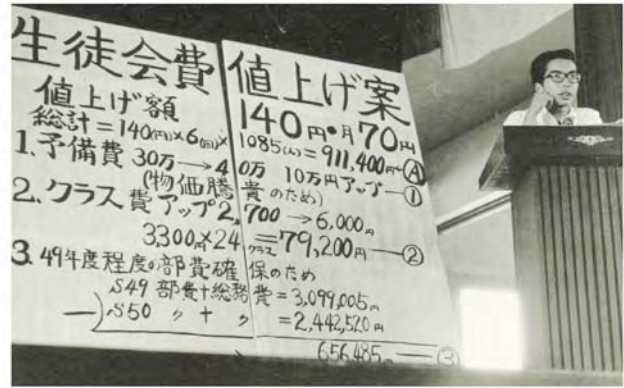 生徒会費 値上げ案
値上げ額 140円・月70円
総計=140(円)×6(回)×1085(人)=911,400円―Ⓐ
1.予備費 30万→40万 10万円アップ―①
(物価騰貴のため)
2.クラス費アップ2,700→6,000円
3,300円×24クラス=79,200円―②
3.49年度程度の部費確保のため
S49 部費+総務費=3,099,005円
―)S50 〃 + 〃 =2,442,520円
656,485円―③